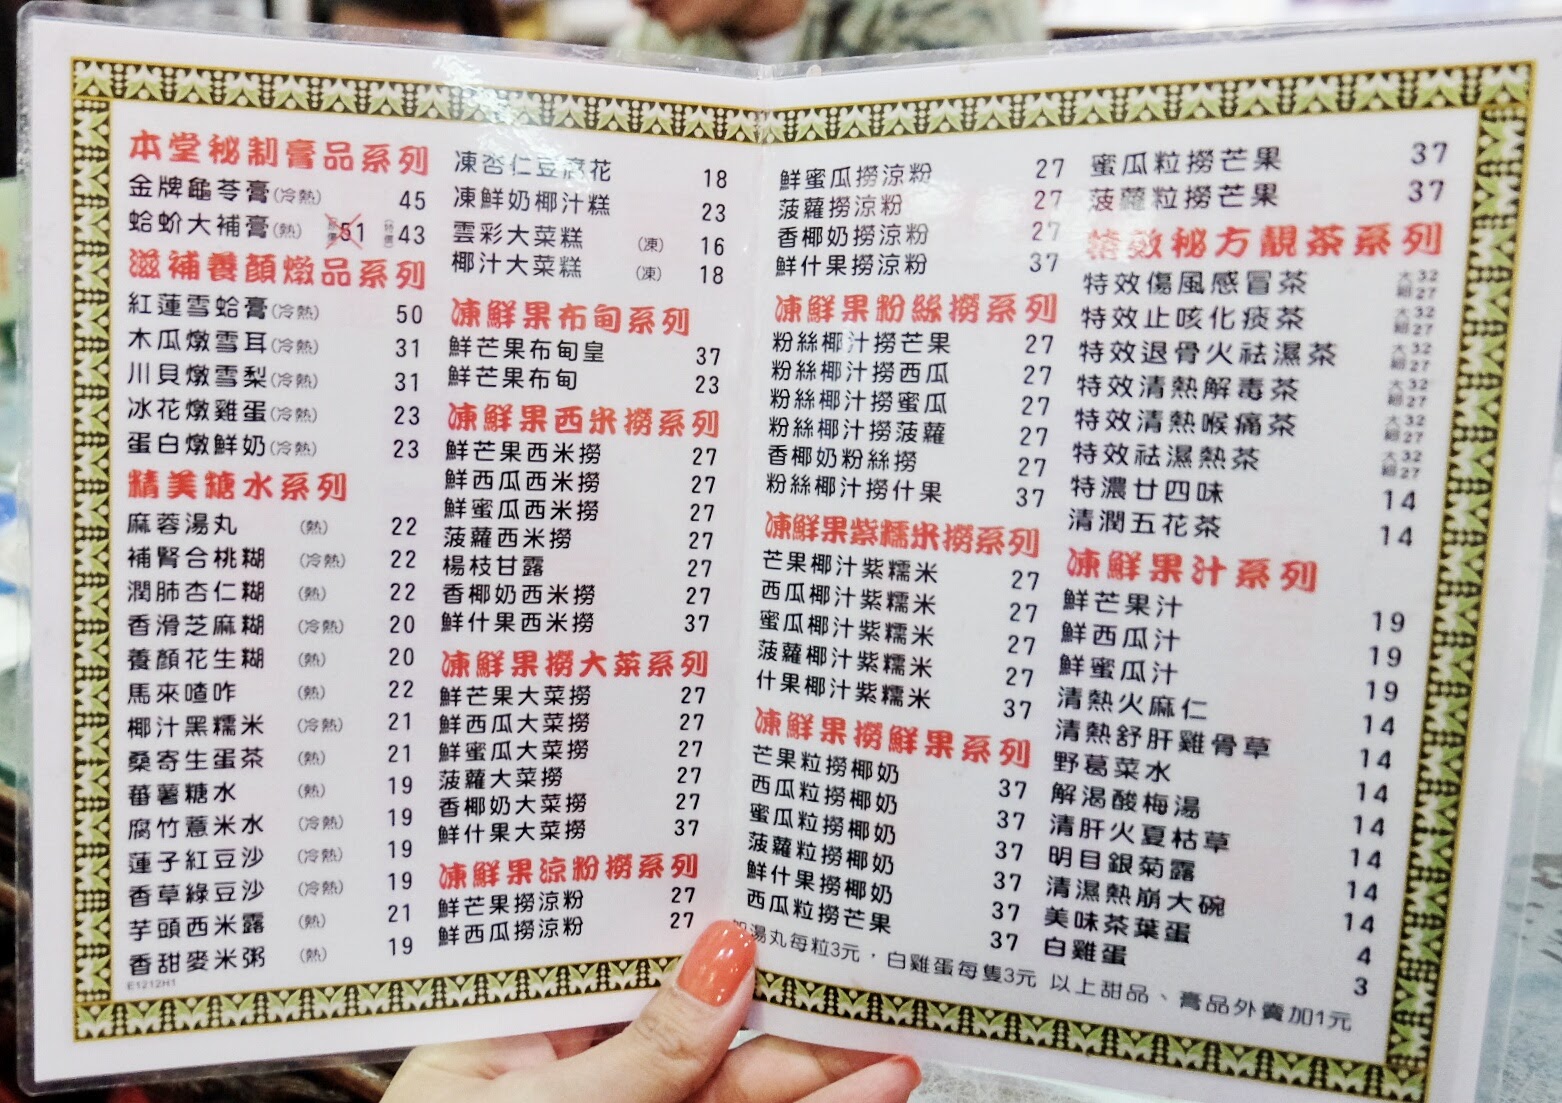 本堂秘制膏品系列
金牌龜苓膏(冷熱) 45
蛤蚧大補膏(熱) 原價51 (特價)43
滋補養顏燉品系列
紅蓮雪蛤膏(冷熱) 50
木瓜燉雪耳(冷熱) 31
川貝燉雪梨(冷熱) 31
冰花燉雞蛋(冷熱) 23
蛋白燉鮮奶(冷熱) 23
精美糖水系列
麻蓉湯丸 (熱) 22
補腎合桃糊 (冷熱) 22
潤肺杏仁糊 (熱) 22
香滑芝麻糊 (冷熱) 20
養顏花生糊 (熱) 20
馬來喳咋 (熱) 22
椰汁黑糯米 (冷熱) 21
桑寄生蛋茶 (熱) 21
蕃薯糖水 (熱) 19
腐竹薏米水 (冷熱) 19
蓮子紅豆沙 (冷熱) 19
香草綠豆沙 (冷熱) 19
芋頭西米露 (熱) 21
香甜麥米粥 (熱) 19
E1212H1
凍杏仁豆腐花 18
凍鮮奶椰汁糕 23
雲彩大菜糕 (凍) 16
椰汁大菜糕 (凍) 18
凍鮮果布甸系列
鮮芒果布甸皇 37
鮮芒果布甸 23
凍鮮果西米撈系列
鮮芒果西米撈 27
鮮西瓜西米撈 27
鮮蜜瓜西米撈 27
菠蘿西米撈 27
楊枝甘露 27
香椰奶西米撈 27
鮮什果西米撈 37
凍鮮果撈大菜系列
鮮芒果大菜撈 27
鮮西瓜大菜撈 27
鮮蜜瓜大菜撈 27
菠蘿大菜撈 27
香椰奶大菜撈 27
鮮什果大菜撈 37
凍鮮果涼粉撈系列
鮮芒果撈涼粉 27
鮮西瓜撈涼粉 27
鮮蜜瓜撈涼粉 27
菠蘿撈涼粉 27
香椰奶撈涼粉 27
鮮什果撈涼粉 37
凍鮮果粉絲撈系列
粉絲椰汁撈芒果 27
粉絲椰汁撈西瓜 27
粉絲椰汁撈蜜瓜 27
粉絲椰汁撈菠蘿 27
香椰奶粉絲撈 27
粉絲椰汁撈什果 37
凍鮮果紫糯米撈系列
芒果椰汁紫糯米 27
西瓜椰汁紫糯米 27
蜜瓜椰汁紫糯米 27
菠蘿椰汁紫糯米 27
什果椰汁紫糯米 37
凍鮮果撈鮮果系列
芒果粒撈椰奶 37
西瓜粒撈椰奶 37
蜜瓜粒撈椰奶 37
菠蘿粒撈椰奶 37
鮮什果撈椰奶 37
西瓜粒撈芒果 37
蜜瓜粒撈芒果 37
菠蘿粒撈芒果 37
特效秘方靚茶系列
特效傷風感冒茶 大32 細27
特效止咳化痰茶 大32 細27
特效退骨火祛濕茶 大32 細27
特效清熱解毒茶 大32 細27
特效清熱喉痛茶 大32 細27
特效祛濕熱茶 大32 細27
特濃廿四味 14
清潤五花茶 14
凍鮮果汁系列
鮮芒果汁 19
鮮西瓜汁 19
鮮蜜瓜汁 19
清熱火麻仁 14
清熱舒肝雞骨草 14
野葛菜水 14
解渴酸梅湯 14
清肝火夏枯草 14
明目銀菊露 14
清濕熱崩大碗 14
美味茶葉蛋 4
白雞蛋 3
加湯丸每粒3元，白雞蛋每隻3元 以上甜品、膏品外賣加1元